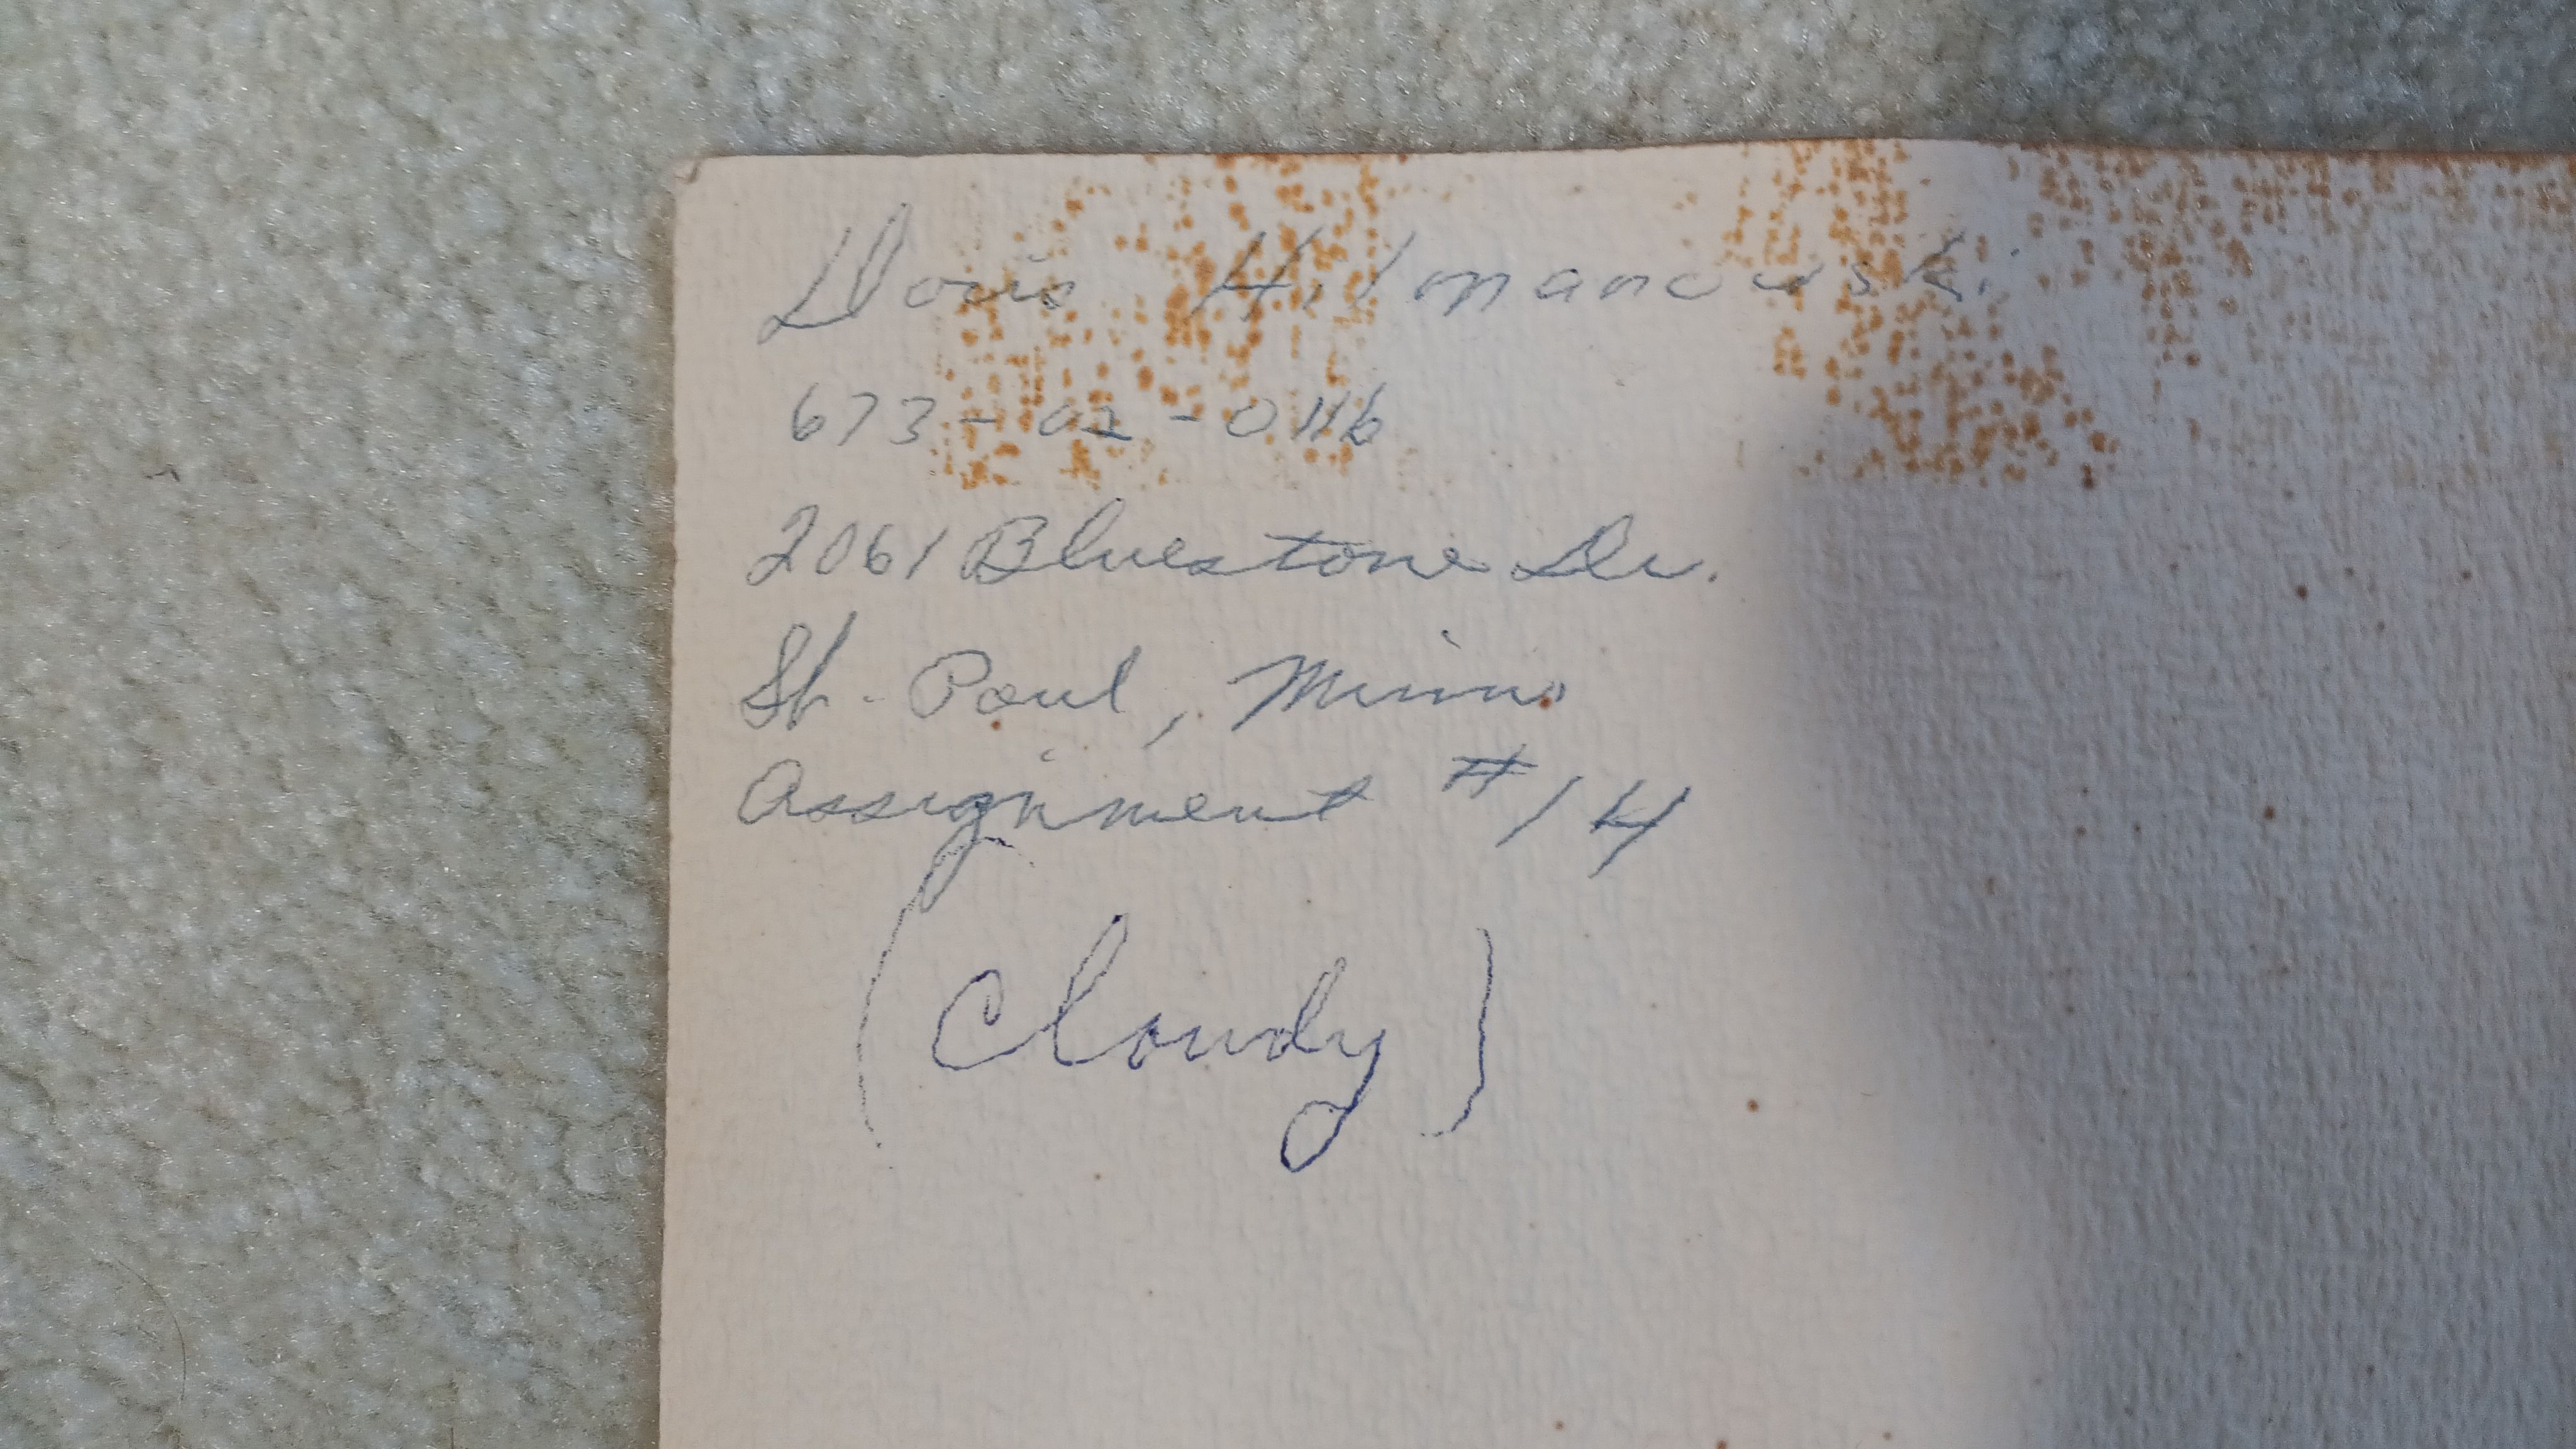 Doris Hilmanowski
673-02-0116
2061 Bluestone Dr.
St. Paul, Minn.
Assignment #14
(Cloudy)